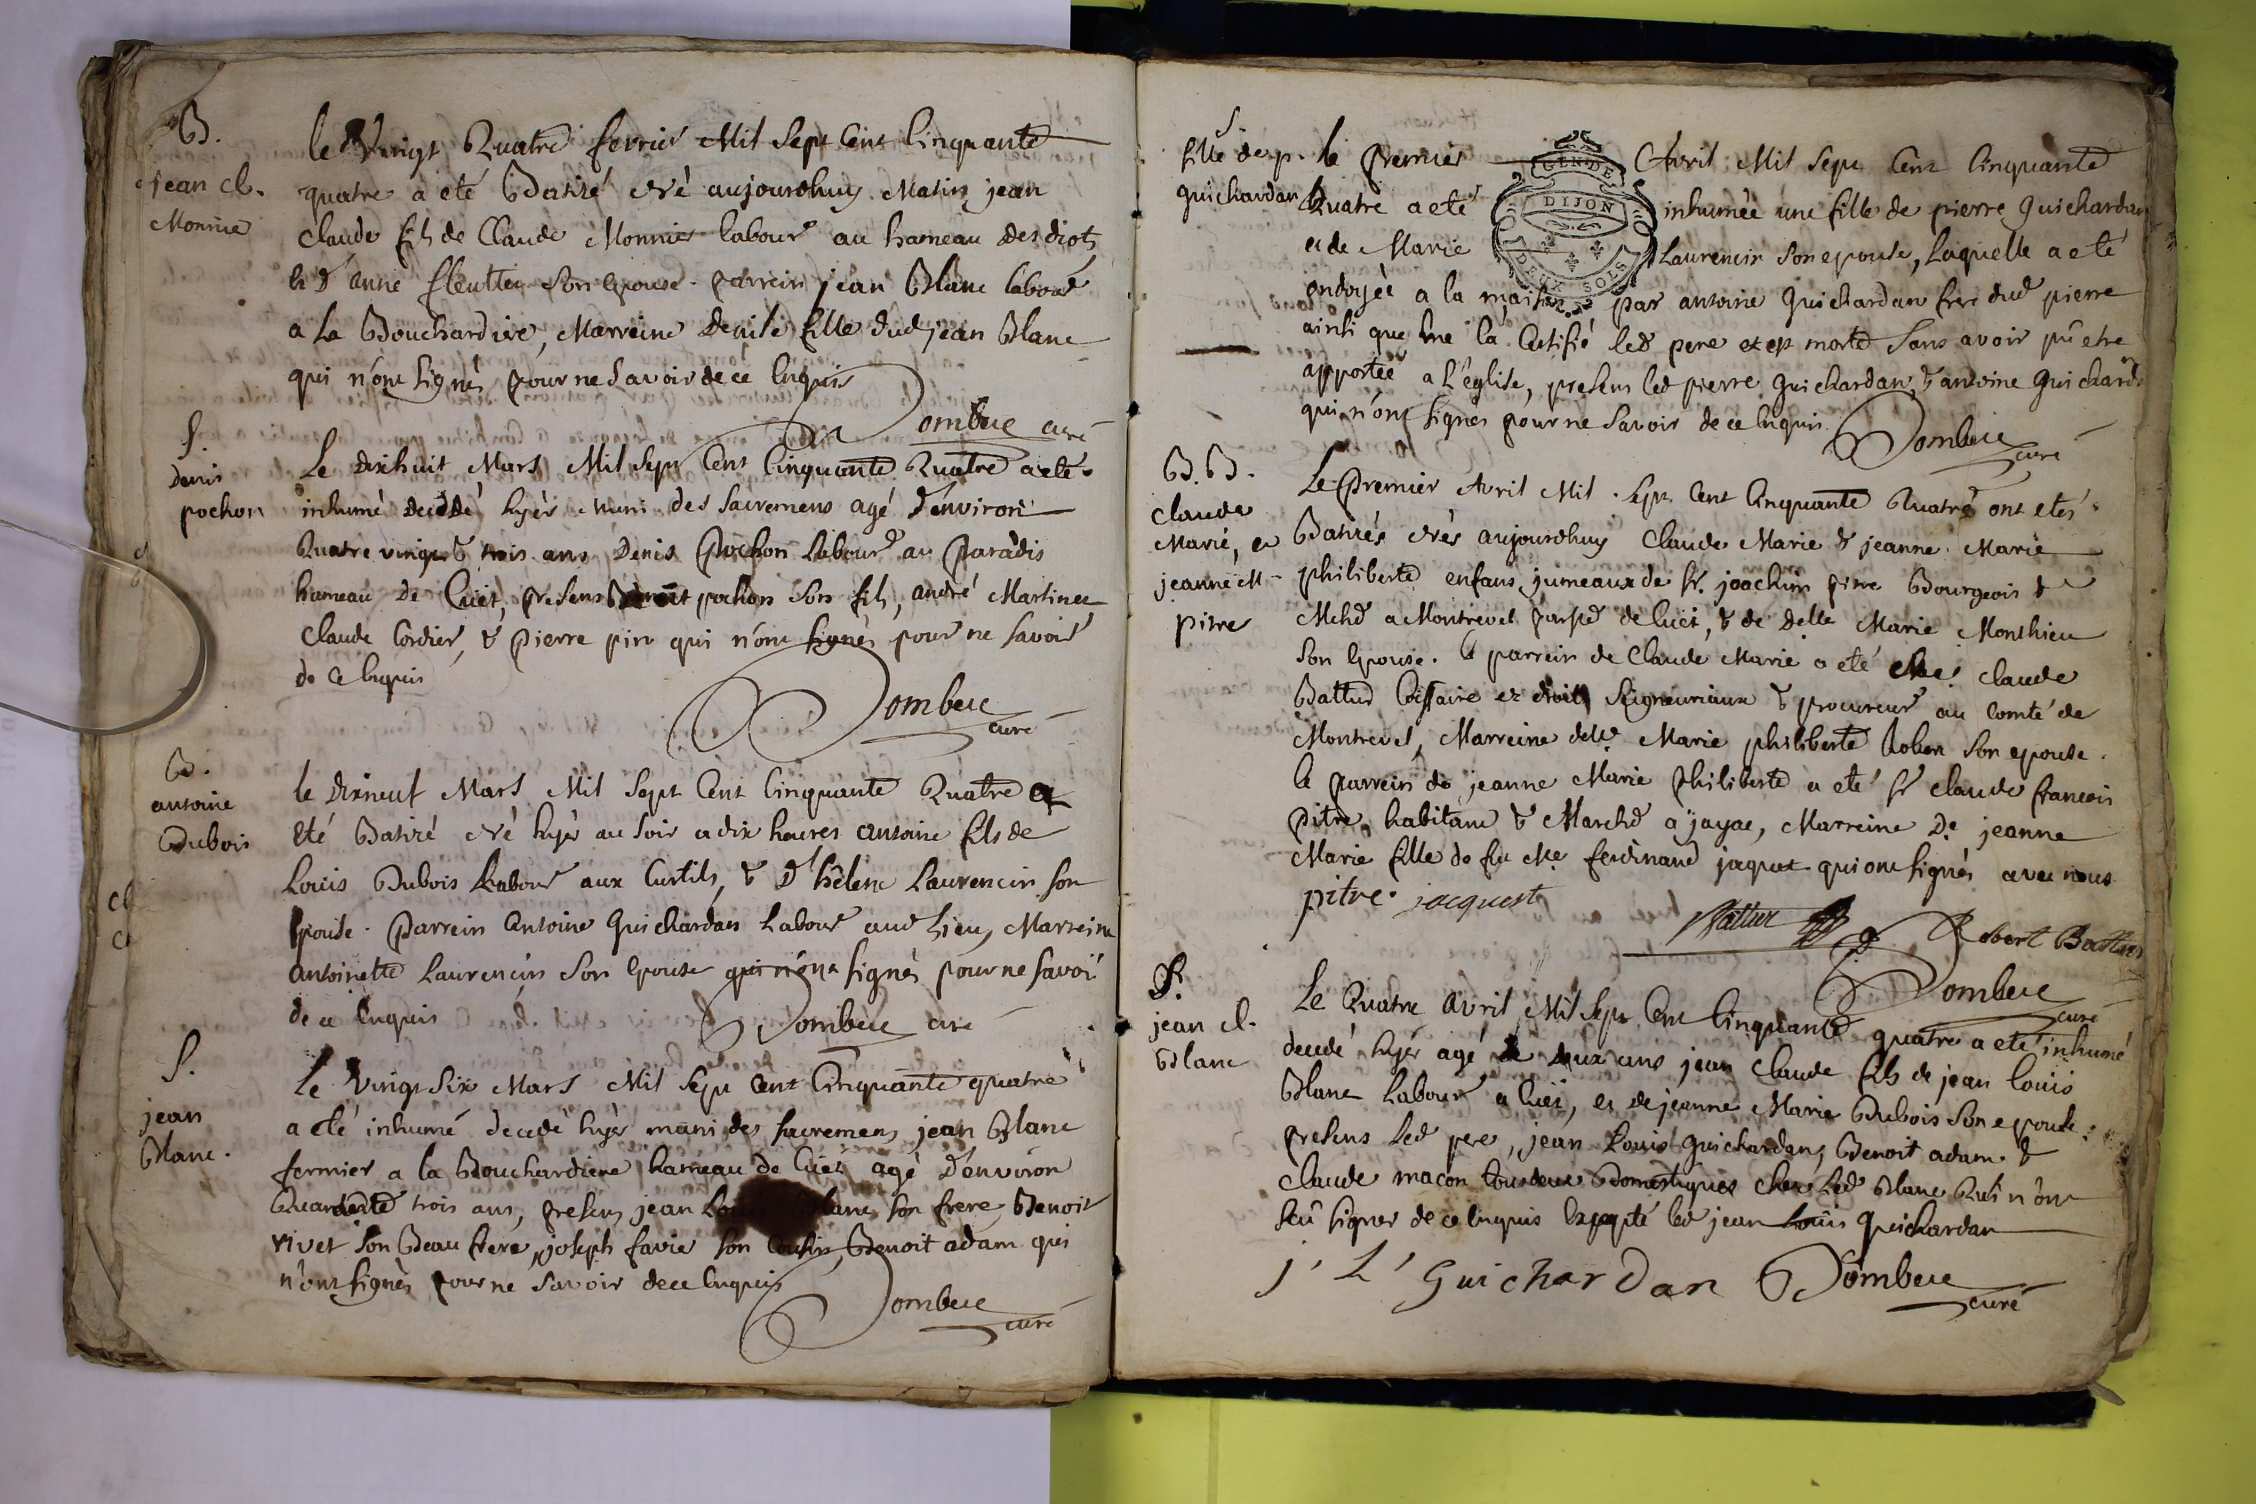 B.
jean cl.
Monnie
le Vingt Quatre fevrier Mil Sept Cent Cinquante
quatre a eté Batizé né aujourdhuy Matin jean
claude fils de Claude Monnier labour au hameau des diots
& d anne fleutter son epouse. parrein jean Blanc labour
a La Bouchardiere, Marreine Denise fille dud jean Blanc
qui n'ont signés pour ne savoir de ce enquis
Dombeie curé
S.
denis
pochon
Le dixhuit Mars Mil Sept Cent Cinquante Quatre a eté
inhumé decedé hyèr muni des Sacremens agé d'environ
Quatre vingt & trois ans Denis Pochon labour au Paradis
hameau De Cuet, presens Benoit pochon son fils, andré Martinet
Claude Cordier, & Pierre piro qui n'ont signés pour ne savoir
de ce enquis
Dombeie
curé
B.
antoine
Dubois
le dixneuf Mars Mil Sept Cent Cinquante Quatre a
Eté Batizé né hyèr au soir a dix heures antoine fils de
Louis Dubois Labour aux Curtils, & d'hélène Laurencin son
Epouse. Parrein antoine Guichardan Labour aud Lieu, Marreine
antoinette Laurencin son epouse qui n'ont signés pour ne savoir
de ce enquis
Dombeie curé
S.
jean
Blanc.
Le vingt Six Mars Mil Sept Cent Cinquante quatre
a eté inhumé decedé hyèr muni des sacremens jean Blanc
fermier a la Bouchardiere hameau de Cuet agé d'environ
Quarante trois ans, presens jean Blanc son frere, Benoit
vivet son Beau frere, joseph favie son Cousin, Benoit adam qui
n'ont signés pour ne savoir de ce enquis
Dombeie
curé
S
fille de p.
guichardan
le premier Avril Mil Sept Cent Cinquante
GEN. DE
DIJON
DEUX SOLS
Quatre a eté inhumée une fille de pierre Guichardan
et de Marie Laurencin son epouse, Laquelle a eté
ondoyée a la maison par antoine Guichardan frere dud pierre
ainsi que me l'a Certifié led pere et est morte sans avoir pû etre
apportée a l'église, presens led pierre Guichardan, & antoine Guichard
qui n'ont signés pour ne savoir de ce enquis.
Dombeie
curé
B. B.
claude
Marie, et
jeanne M
pitre
Le Premier Avril Mil Sept Cent Cinquante Quatre ont etés
Batizés nés aujourdhuy Claude Marie & jeanne Marie
philiberte enfans jumeaux de Sr. joachim pitre Bourgeois &
Mchd a Montrevel parsse de Cuet, & de Delle Marie Monthieu
son Epouse. Le parrein de Claude Marie a eté Me claude
Battur Cossaire es droits Seigneuriaux & procureur au Comté de
Montrevel, Marreine delle Marie philiberte Robert son epouse.
le parrein de jeanne Marie Philiberte a eté Sr claude francois
Pitre habitant & Marchd a jayac, Marreine De jeanne
Marie fille de feu Me ferdinand jaquet qui ont signés avec nous
pitre. jacquest
Battur Robert Battur
Dombeie
curé
S.
jean cl.
Blanc
Le Quatre Avril Mil Sept Cent Cinquante quatre a eté inhumé
decedé hyèr agé de deux ans jean Claude fils de jean louis
Blanc Labour a Cuet, et de jeanne Marie Dubois son epouse:
presens Led pere, jean Louis Guichardan, Benoit adam &
Claude macon tous deux Domestiques chez Led Blanc Qui n'ont
sçû signer de ce enquis Excepté led jean Louis Guichardan
j' L' Guichardan Dombeie
curé